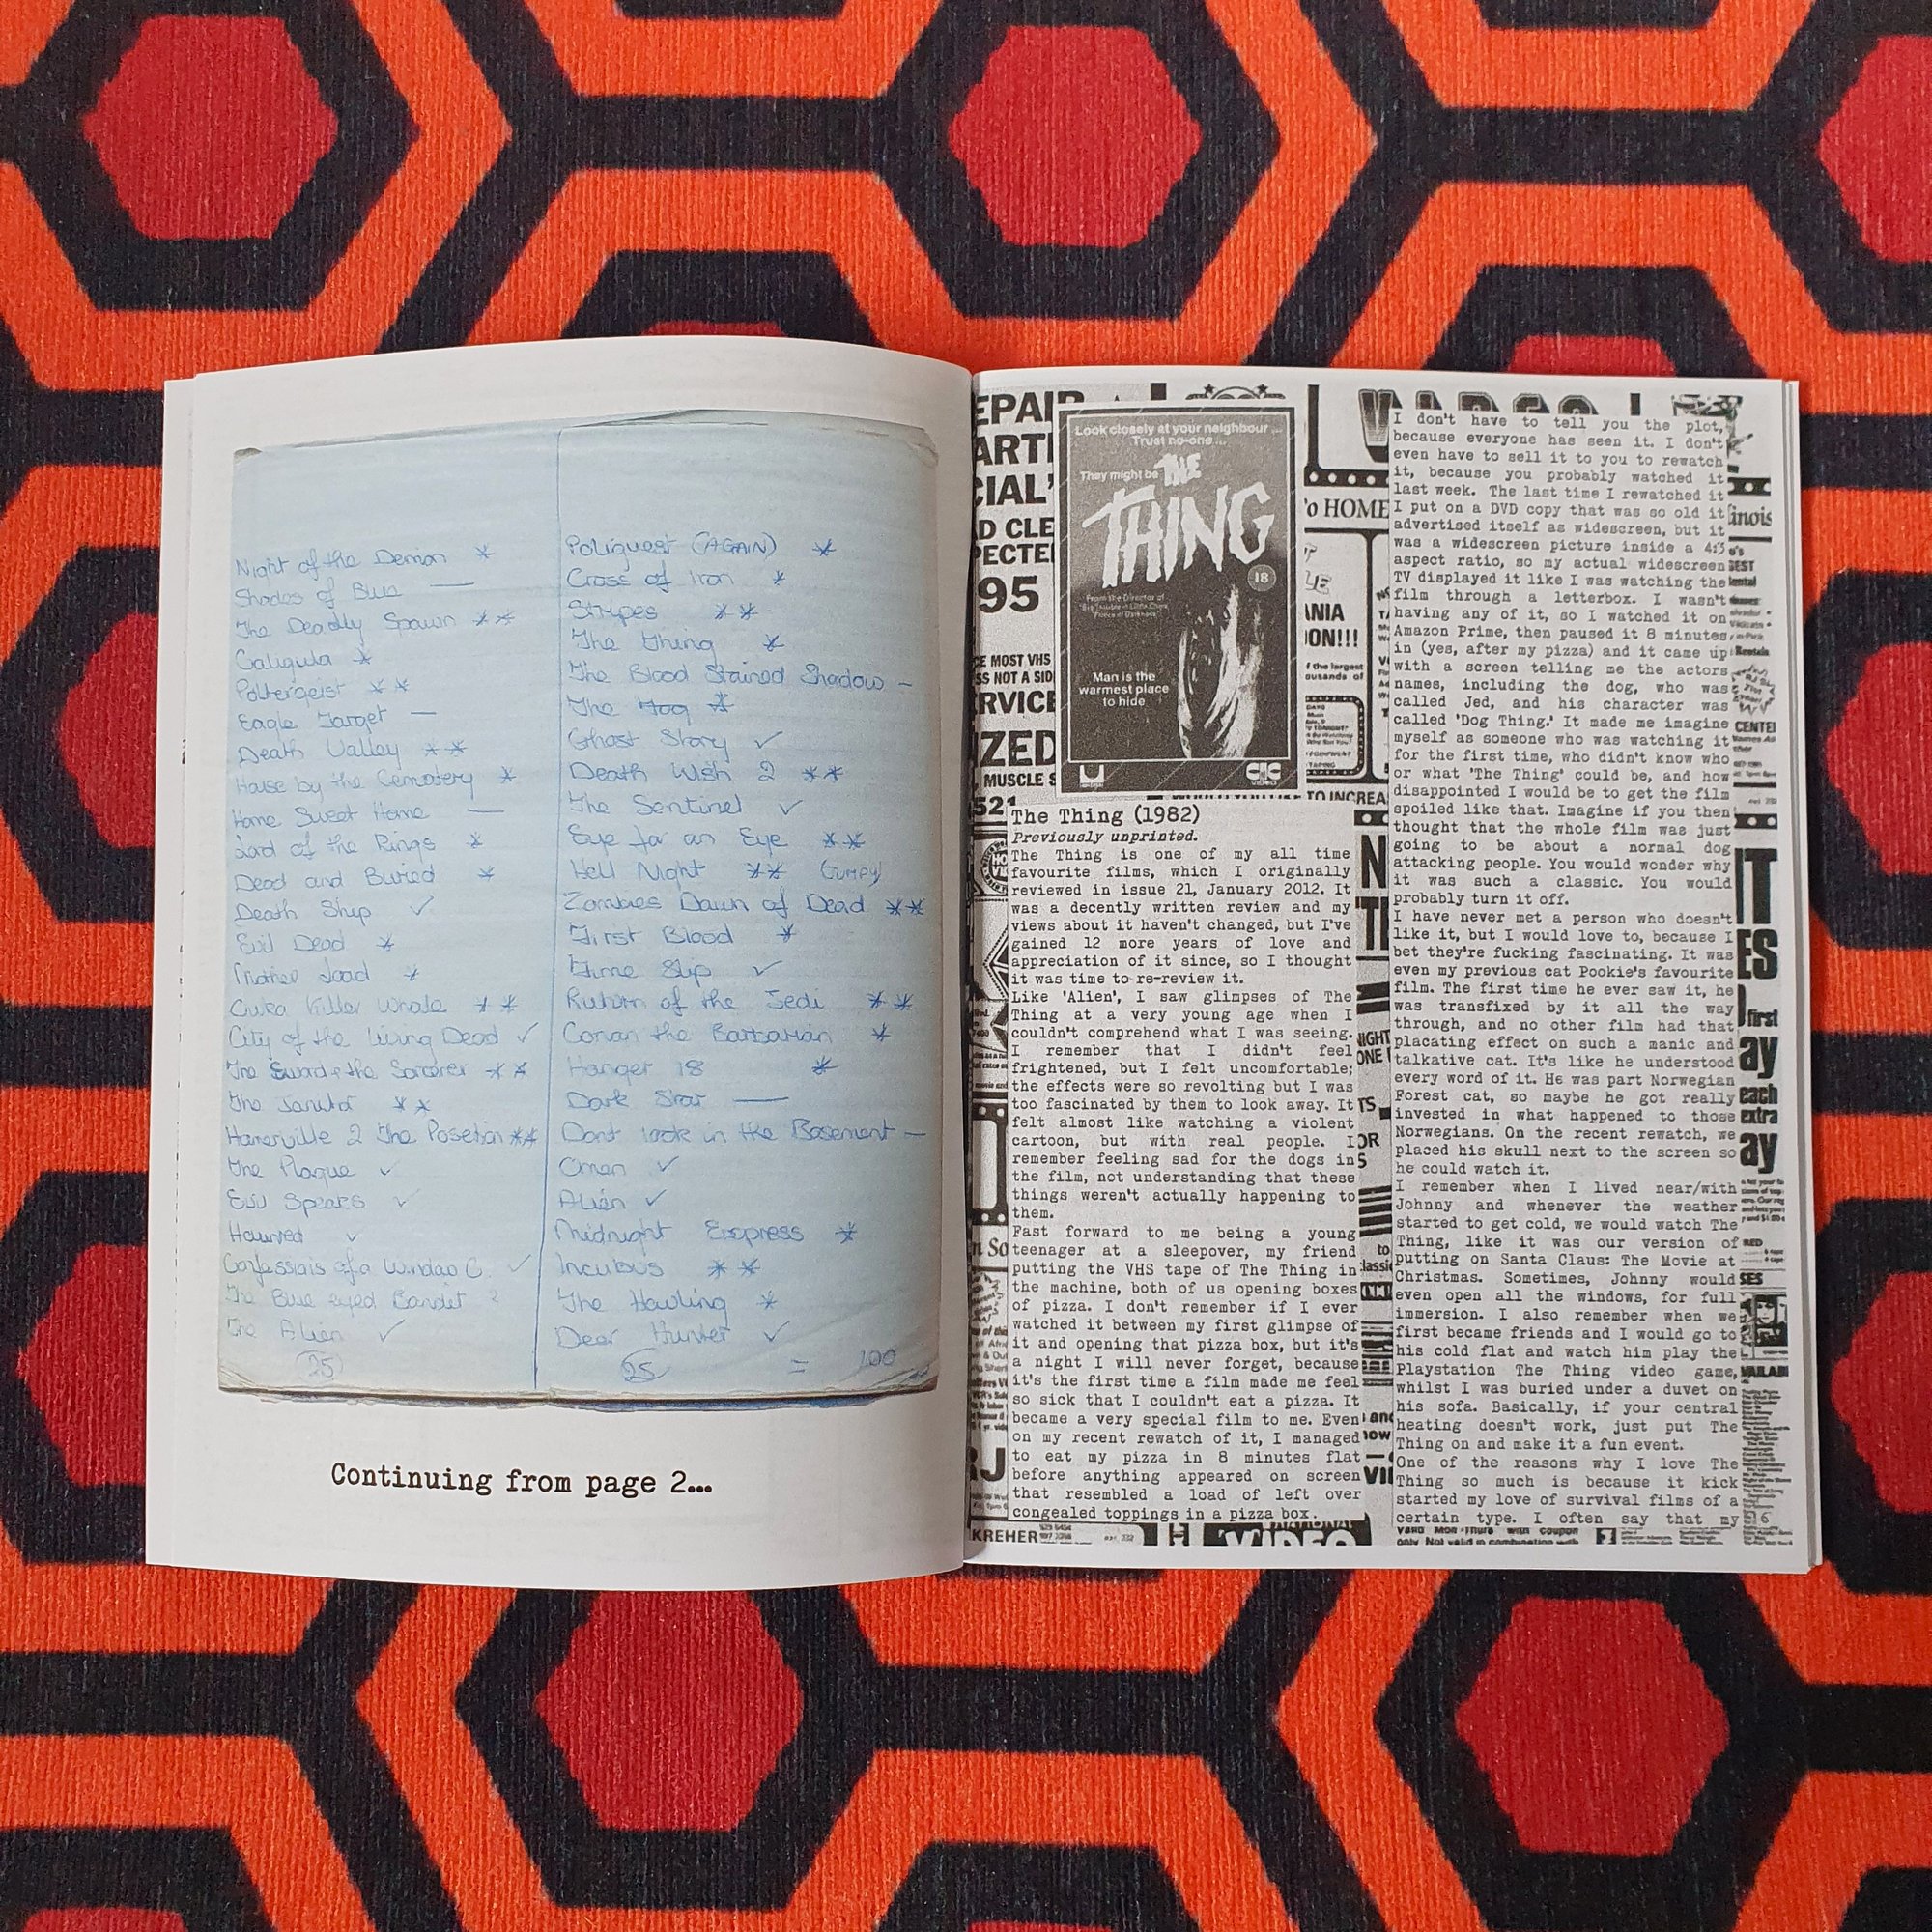 Night of the Demon *
Shades of Blue —
The Deadly Spawn **
Caligula *
Poltergeist **
Eagle Target —
Death Valley **
House by the Cemetery *
Home Sweet Home —
Lord of the Rings *
Dead and Buried *
Death Ship ✓
Evil Dead *
Mother Load *
Killer Whale **
City of the Living Dead ✓
The Sword & the Sorcerer **
The Janitor **
2 The Posetion **
The Plague ✓
Evil Speaks ✓
Haunted ✓
Confessions of a Window C. ✓
The Blue eyed Bandit ?
The Alien ✓
25
(AGAIN) *
Cross of Iron *
Stripes **
The Thing *
The Blood Stained Shadow —
The *
Ghost Story ✓
Death Wish 2 **
The Sentinel ✓
Eye for an Eye **
Hell Night **
Zombies Dawn of Dead **
First Blood *
Time Slip ✓
Return of the Jedi **
Conan the Barbarian *
Hanger 18 *
Dark Star —
Dont look in the Basement —
Omen ✓
Alien ✓
Midnight Express *
Incubus **
The Howling *
Dear Hunter ✓
25 = 100
Continuing from page 2...
Look closely at your neighbour ...
Trust no-one ...
They might be
THE
THING
18
From the Director of
Man is the
warmest place
to hide
CIC
VIDEO
The Thing (1982)
Previously unprinted.
The Thing is one of my all time
favourite films, which I originally
reviewed in issue 21, January 2012. It
was a decently written review and my
views about it haven't changed, but I've
gained 12 more years of love and
appreciation of it since, so I thought
it was time to re-review it.
Like 'Alien', I saw glimpses of The
Thing at a very young age when I
couldn't comprehend what I was seeing.
I remember that I didn't feel
frightened, but I felt uncomfortable;
the effects were so revolting but I was
too fascinated by them to look away. It
felt almost like watching a violent
cartoon, but with real people. I
remember feeling sad for the dogs in
the film, not understanding that these
things weren't actually happening to
them.
Fast forward to me being a young
teenager at a sleepover, my friend
putting the VHS tape of The Thing in
the machine, both of us opening boxes
of pizza. I don't remember if I ever
watched it between my first glimpse of
it and opening that pizza box, but it's
a night I will never forget, because
it's the first time a film made me feel
so sick that I couldn't eat a pizza. It
became a very special film to me. Even
on my recent rewatch of it, I managed
to eat my pizza in 8 minutes flat
before anything appeared on screen
that resembled a load of left over
congealed toppings in a pizza box.
I don't have to tell you the plot,
because everyone has seen it. I don't
even have to sell it to you to rewatch
it, because you probably watched it
last week. The last time I rewatched it
I put on a DVD copy that was so old it
advertised itself as widescreen, but it
was a widescreen picture inside a 4:3
aspect ratio, so my actual widescreen
TV displayed it like I was watching the
film through a letterbox. I wasn't
having any of it, so I watched it on
Amazon Prime, then paused it 8 minutes
in (yes, after my pizza) and it came up
with a screen telling me the actors
names, including the dog, who was
called Jed, and his character was
called 'Dog Thing.' It made me imagine
myself as someone who was watching it
for the first time, who didn't know who
or what 'The Thing' could be, and how
disappointed I would be to get the film
spoiled like that. Imagine if you then
thought that the whole film was just
going to be about a normal dog
attacking people. You would wonder why
it was such a classic. You would
probably turn it off.
I have never met a person who doesn't
like it, but I would love to, because I
bet they're fucking fascinating. It was
even my previous cat Pookie's favourite
film. The first time he ever saw it, he
was transfixed by it all the way
through, and no other film had that
placating effect on such a manic and
talkative cat. It's like he understood
every word of it. He was part Norwegian
Forest cat, so maybe he got really
invested in what happened to those
Norwegians. On the recent rewatch, we
placed his skull next to the screen so
he could watch it.
I remember when I lived near/with
Johnny and whenever the weather
started to get cold, we would watch The
Thing, like it was our version of
putting on Santa Claus: The Movie at
Christmas. Sometimes, Johnny would
even open all the windows, for full
immersion. I also remember when we
first became friends and I would go to
his cold flat and watch him play the
Playstation The Thing video game,
whilst I was buried under a duvet on
his sofa. Basically, if your central
heating doesn't work, just put The
Thing on and make it a fun event.
One of the reasons why I love The
Thing so much is because it kick
started my love of survival films of a
certain type. I often say that my